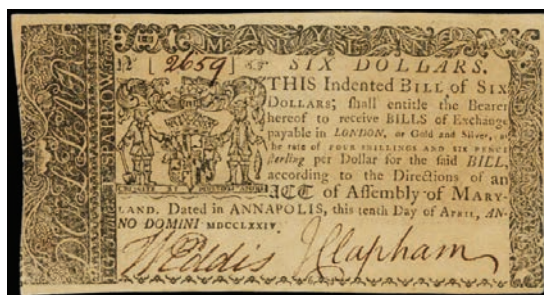 MARYLAND
Nº [ 2659 ] SIX DOLLARS.
THIS Indented BILL of SIX
DOLLARS, shall entitle the Bearer
hereof to receive BILLS of Exchange
payable in LONDON, or Gold and Silver, at
the rate of FOUR SHILLINGS AND SIX PENCE
sterling per Dollar for the said BILL,
according to the Directions of an
ACT of Assembly of MARY-
LAND. Dated in ANNAPOLIS, this tenth Day of APRIL, AN-
NO DOMINI MDCCLXXIV.
W Eddis J Clapham
SPARROW
DOLLAR